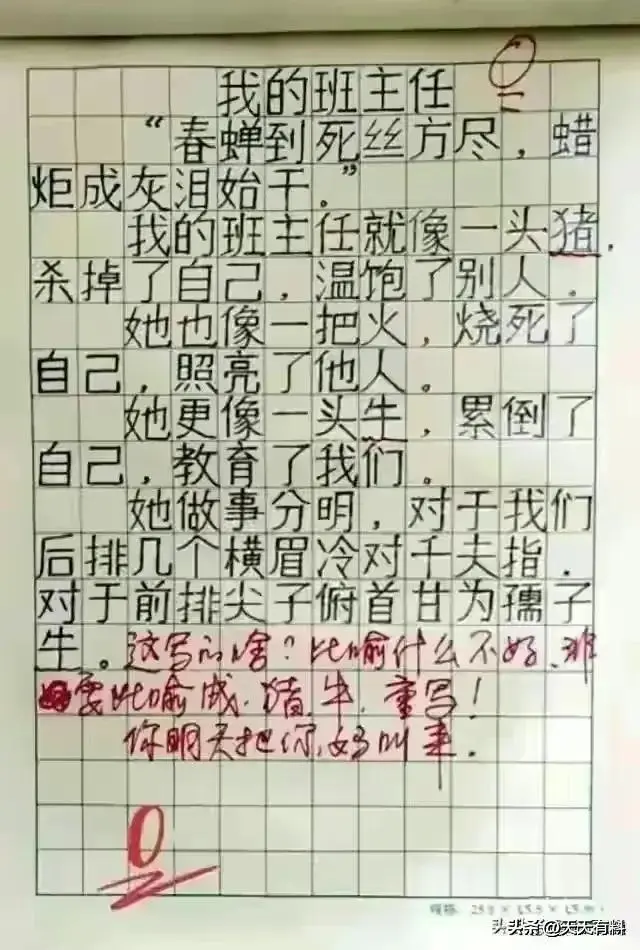 0
我的班主任
“春蝉到死丝方尽，蜡
炬成灰泪始干。”
我的班主任就像一头猪，
杀掉了自己，温饱了别人．
她也像一把火，烧死了
自己，照亮了他人。
她更像一头牛，累倒了
自己，教育了我们。
她做事分明，对于我们
后排几个横眉冷对千夫指．
对于前排尖子俯首甘为孺子
牛。这写的啥？比喻什么不好、非
要比喻成．猪．牛．重写！
你明天把你妈叫来．
0
规格：
头条@天天有料